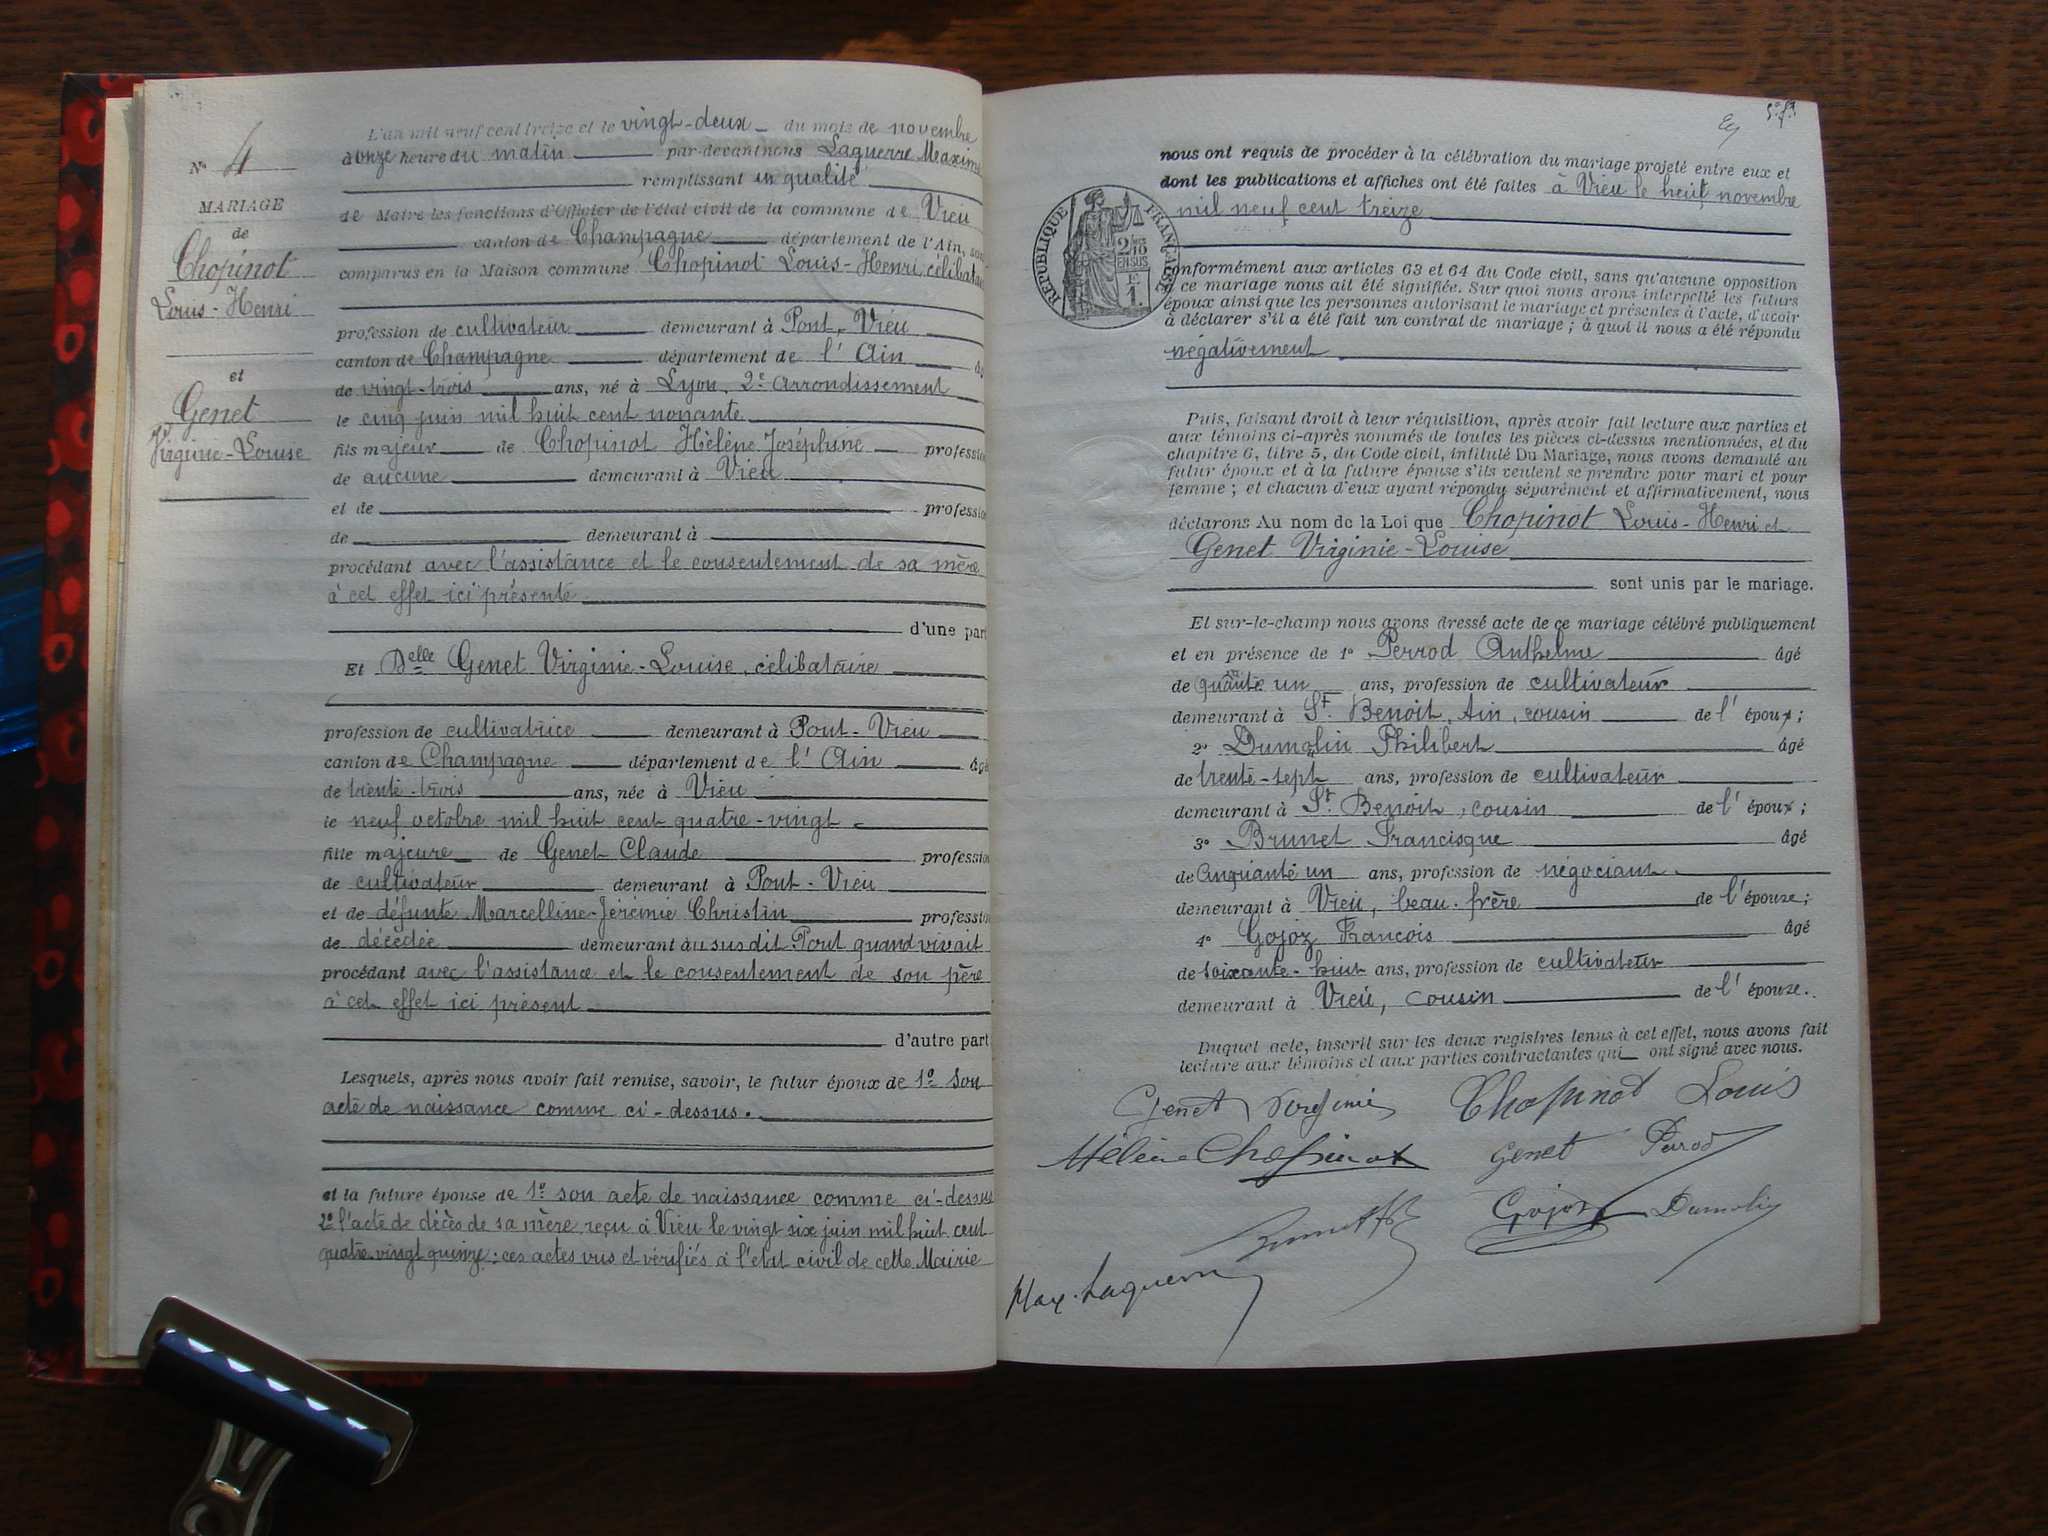 L'an mil neuf cent treize et le vingt-deux du mois de novembre
à onze heure du matin par-devant nous Laguerre Maxime
remplissant en qualité
de Maire les fonctions d'Officier de l'état civil de la commune de Vieu
canton de Champagne département de l'Ain, sont
comparus en la Maison commune Chopinot Louis-Henri, célibataire
profession de cultivateur demeurant à Pont-Vieu
canton de Champagne département de l'Ain âgé
de vingt-trois ans, né à Lyon, 2e arrondissement
le cinq juin mil huit cent nonante
fils majeur de Chopinot Hélène Joséphine profession
de aucune demeurant à Vieu
et de profession
de demeurant à
procédant avec l'assistance et le consentement de sa mère
à cet effet ici présente
d'une part
Et Delle Genet Virginie-Louise, célibataire
profession de cultivatrice demeurant à Pont-Vieu
canton de Champagne département de l'Ain âgé
de trente-trois ans, née à Vieu
le neuf octobre mil huit cent quatre-vingt
fille majeure de Genet Claude profession
de cultivateur demeurant à Pont-Vieu
et de défunte Marcelline-Jérémie Christin profession
de décédée demeurant au susdit Pont quand vivait
procédant avec l'assistance et le consentement de son père
à cet effet ici présent
d'autre part
Lesquels, après nous avoir fait remise, savoir, le futur époux de 1º son
acte de naissance comme ci-dessus.
et la future épouse de 1º son acte de naissance comme ci-dessus
2º l'acte de décès de sa mère reçu à Vieu le vingt six juin mil huit cent
quatre vingt quinze: ces actes vus et vérifiés à l'état civil de cette Mairie
No 4
MARIAGE
de
Chopinot
Louis-Henri
et
Genet
Virginie-Louise
nous ont requis de procéder à la célébration du mariage projeté entre eux et
dont les publications et affiches ont été faites à Vieu le huit novembre
mil neuf cent treize
RÉPUBLIQUE FRANÇAISE
2/10
EN SUS
1F
conformément aux articles 63 et 64 du Code civil, sans qu'aucune opposition
à ce mariage nous ait été signifiée. Sur quoi nous avons interpellé les futurs
époux ainsi que les personnes autorisant le mariage et présentes à l'acte, d'avoir
à déclarer s'il a été fait un contrat de mariage; à quoi il nous a été répondu
négativement
Puis, faisant droit à leur réquisition, après avoir fait lecture aux parties et
aux témoins ci-après nommés de toutes les pièces ci-dessus mentionnées, et du
chapitre 6, titre 5, du Code civil, intitulé Du Mariage, nous avons demandé au
futur époux et à la future épouse s'ils veulent se prendre pour mari et pour
femme; et chacun d'eux ayant répondu séparément et affirmativement, nous
déclarons Au nom de la Loi que Chopinot Louis-Henri et
Genet Virginie-Louise
sont unis par le mariage.
Et sur-le-champ nous avons dressé acte de ce mariage célébré publiquement
et en présence de 1º Perrod Anthelme âgé
de quarante un ans, profession de cultivateur
demeurant à St. Benoit, Ain, cousin de l'époux;
2º Dumolin Philibert âgé
de trente-sept ans, profession de cultivateur
demeurant à St. Benoit, cousin de l'époux;
3º Brunet Francisque âgé
de Cinquante un ans, profession de négociant
demeurant à Vieu, beau-frère de l'épouze;
4º Gojoz Francois âgé
de soixante-huit ans, profession de cultivateur
demeurant à Vieu, cousin de l'épouze.
Duquel acte, inscrit sur les deux registres tenus à cet effet, nous avons fait
lecture aux témoins et aux parties contractantes qui ont signé avec nous.
Genet Virginie Chopinot Louis
Hélène Chopinot Genet Perrod
Brunet Gojoz Dumolin
Max. Laguerre